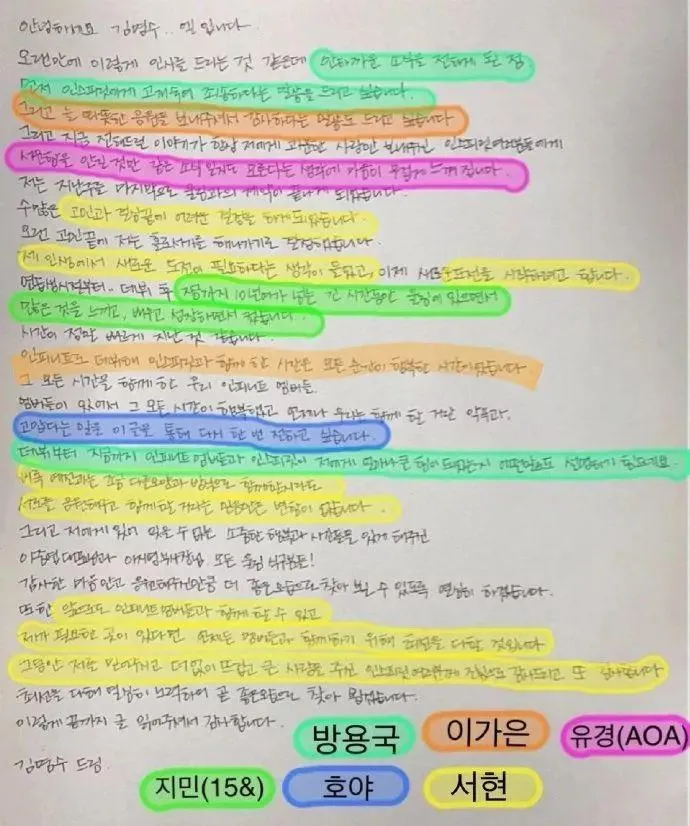 안녕하세요 김명수.. 엘 입니다
오랜만에 이렇게 인사를 드리는 것 같은데 안타까운 소식을 전하게 된 점
먼저 인스피릿에게 고개숙여 죄송하다는 말씀을 드리고 싶습니다.
그리고 늘 따뜻한 응원을 보내주셔서 감사하다는 말씀도 드리고 싶습니다
그리고 지금 전해드릴 이야기가 항상 저에게 과분한 사랑만 보내주신 인스피릿여러분들에게
서운함을 안길 것만 같은 소식일지도 모른다는 생각에 마음이 무겁게 느껴집니다.
저는 지난주를 마지막으로 울림과의 계약이 끝나게 되었습니다.
수많은 고민과 걱정끝에 어려운 결정을 하게되었습니다.
오랜 고민끝에 저는 홀로서기를 해나가기로 결정했습니다.
제 인생에서 새로운 도전이 필요하다는 생각이 들었고, 이제 새로운도전을 시작하려고 합니다.
연습생시절부터- 데뷔 후 지금까지 10년여가 넘는 긴 시간동안 울림에 있으면서
많은 것을 느끼고, 배우고 성장하면서 컸습니다.
시간이 정말 빠르게 지난 것 같습니다.
인피니트로 데뷔해 인스피릿과 함께 한 시간은 모든 순간이 행복한 시간이었습니다.
그 모든 시간을 함께 한 우리 인피니트 멤버들.
멤버들이 있어서 그 모든 시간이 행복했고 언제나 우리는 함께 할 거란 약속과.
고맙다는 말을 이 글을 통해 다시 한 번 전하고 싶습니다.
데뷔부터 지금까지 인피니트 멤버들과 인스피릿이 저에게 얼마나 큰 힘이 되었는지 어떤말으로 설명하기 힘드네요.
비록 예전과는 조금 다른모양과 방식으로 함께할지라도
서로를 응원해주고 함께할 거라는 믿음만은 변함이 없습니다.
그리고 저에게 있어 잊을 수 없는 소중한 행복과 시간들을 있게 해주신
이중엽대표님과 이지영부사장님 모든 울림 식구분들!
감사한 마음안고 응원해주신만큼 더 좋은모습으로 찾아 뵐 수 있도록 열심히 하겠습니다.
또한 앞으로도 인피니트멤버들과 함께 할 수 있고
제가 필요한 곳이 있다면 언제든 멤버들과 함께하기 위해 최선을 다할 것입니다
그동안 저를 믿어주시고 더없이 뜨겁고 큰 사랑을 주신 인스피릿여러분께 진심으로 감사드리고 또 감사합니다
최선을 다해 열심히 노력하여 곧 좋은모습으로 찾아 뵙겠습니다.
이렇게 끝까지 글 읽어주셔서 감사합니다.
김명수 드림.
방용국 이가은 유경(AOA)
지민(15&) 호야 서현